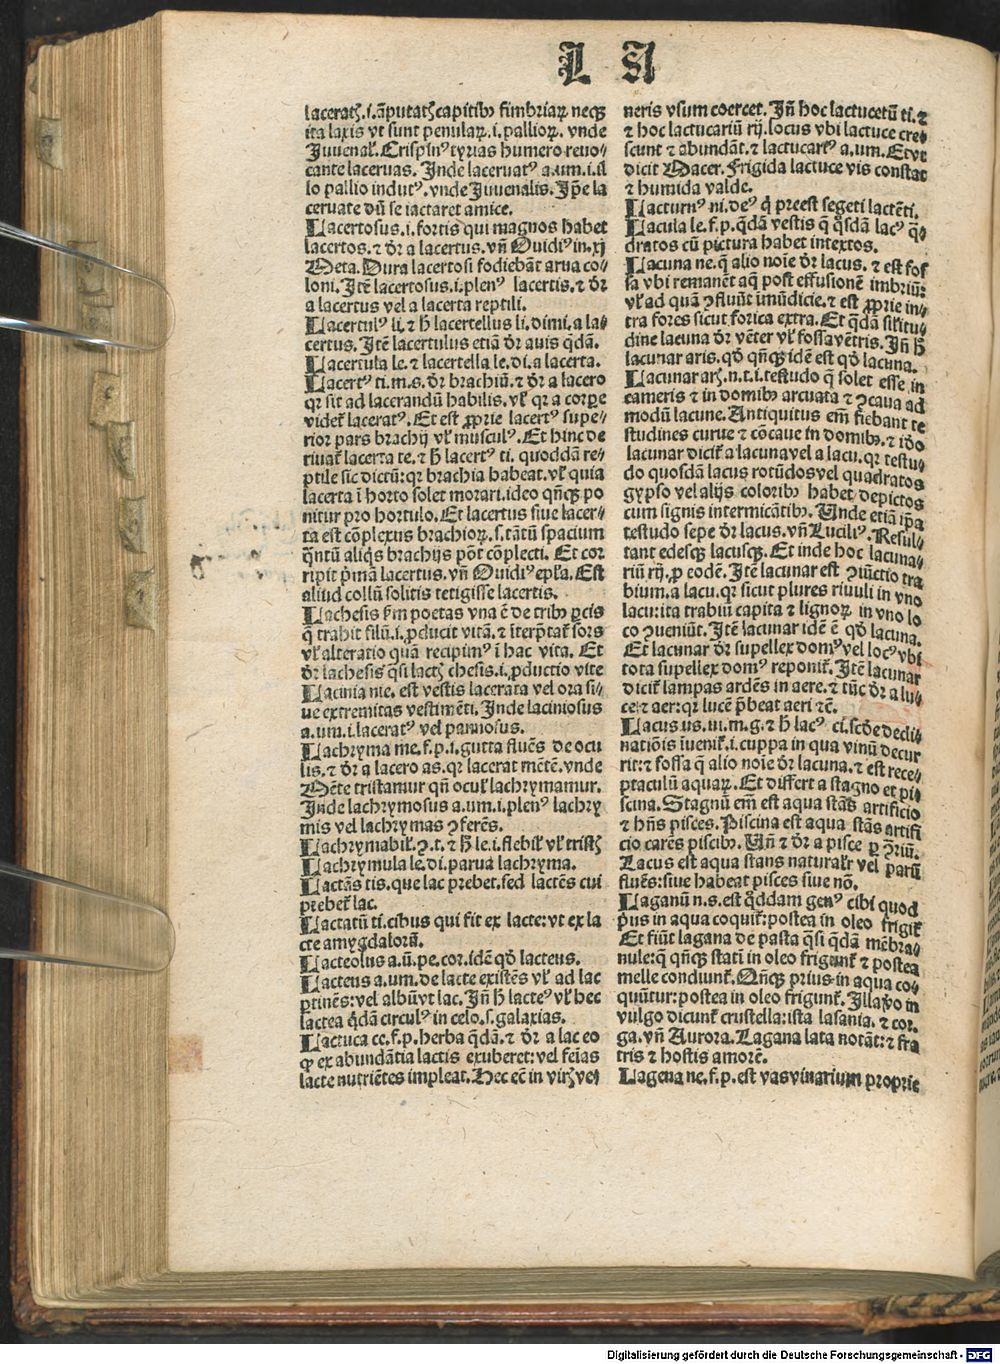 L A
laceratꝫ.i.āputatꝫ capitibꝰ fimbriaꝝ necqꝫ
ita laxis vt sunt penulaꝝ.i.pallioꝝ. vnde
Juuenaꝉ. Crispinꝰ tyrias humero reuo⸗
cante lacernas. Inde lacernatꝰ a.um.i. il
lo pallio indutꝰ. vnde Juuenalis. Ip̄e la
cernate dū se iactaret amice.
Lacertosus.i.fortis qui magnos habet
lacertos. ⁊ dr̄ a lacertus. vn̄ Ouidiꝰ in.xj
Meta. Dura lacertosi fodiebāt arua co⸗
loni. Itē lacertosus.i.plenꝰ lacertis. ⁊ dr̄
a lacertus vel a lacerta reptili.
Lacertulꝰ li. ⁊ h̄ lacertellus li. dimi. a la⸗
certus. Itē lacertulus etiā dr̄ auis q̄dā.
Lacertula le. ⁊ lacertella le. di. a lacerta.
Lacertꝰ ti. m.s. dr̄ brachiū. ⁊ dr̄ a lacero
qr sit ad lacerandū habilis. vꝉ qr a corpe
videꝉ laceratꝰ. Et est ꝓprie lacertꝰ supe⸗
rior pars brachij vꝉ musculꝰ. Et hinc de
riuat̉ lacerta te. ⁊ h̄ lacertꝰ ti. quoddā re⸗
ptile sic dictū: qr brachia habeat. vꝉ quia
lacerta ī horto solet morari. ideo qn̄qꝫ po
nitur pro hortulo. Et lacertus siue lacer⸗
ta est cōplexus brachioꝝ. s. tātū spacium
q̄ntū aliq̄s brachijs pōt cōplecti. Et cor
ripit p̄mā lacertus. vn̄ Ouidiꝰ epꝉa. Est
aliud collū solitis tetigisse lacertis.
Lachesis ẜm poetas vna ē de tribꝰ ꝑcis
q̄ trahit filū.i. ꝓducit vitā. ⁊ īterp̄tat̉ sors
vꝉ alteratio quā recipimꝰ ī hac vita. Et
dr̄ lachesis q̄si lactꝫ chesis.i.ꝓductio vite
Lacinia nie. est vestis lacerata vel ora si⸗
ue extremitas vestimēti. Inde laciniosus
a.um.i.laceratꝰ vel pannosus.
Lachryma me.f.p.i.gutta fluēs de ocu
lis. ⁊ dr̄ a lacero as. qr lacerat mētē. vnde
Mēte tristamur qn̄ ocuꝉ lachrymamur.
Inde lachrymosus a.um.i.plenꝰ lachry
mis vel lachrymas ꝯferēs.
Lachrymabiꝉ. ꝯ.t. ⁊ h̄ le.i. flebiꝉ vꝉ tristꝫ
Lachrymula le. di. parua lachryma.
Lactās tis. que lac prebet. sed lactēs cui
prebet̉ lac.
Lactatū ti. cibus qui fit ex lacte: vt ex la
cte amygdalorū.
Lacteolus a.ū. pe. cor. idē qd̄ lacteus.
Lacteus a.um. de lacte existēs vꝉ ad lac
ꝑtinēs: vel albū vt lac. Jn̄ h̄ lacteꝰ vꝉ hec
lactea q̄dā circulꝰ in celo. s. galaxias.
Lactuca ce.f.p. herba q̄dā. ⁊ dr̄ a lac eo
ꝙ ex abundātia lactis exuberet: vel feīas
lacte nutriētes impleat. Hec eē in virꝫ ve⸗
neris vsum coercet. Jn̄ hoc lactucetū ti. ⁊
⁊ hoc lactucariū rij. locus vbi lactuce cre⸗
scunt ⁊ abundāt. ⁊ lactucarꝰ a.um. Et vt
dicit Macer. Frigida lactuce vis constat
⁊ humida valde.
Lacturnꝰ ni. deꝰ q̄ preest segeti lactēti.
Lacula le.f.p. q̄dā vestis q̄ q̄sdā lacꝰ q̄⸗
dratos cū pictura habet intextos.
Lacuna ne. q̄ alio noīe dr̄ lacus. ⁊ est fos
sa vbi remanēt aq̄ post effusionē imbriū:
vꝉ ad quā ꝯfluūt imūdicie. ⁊ est ꝓprie in⸗
tra fores sicut forica extra. Et q̄dā siꝉitu⸗
dine lacuna dr̄ vēter vꝉ fossa vētris. Jn̄ h̄
lacunar aris. qd̄ qn̄qꝫ idē est qd̄ lacuna.
Lacunar arꝫ. n.t.i. testudo q̄ solet esse in
cameris ⁊ in domibꝰ arcuata ⁊ ꝯcaua ad
modū lacune. Antiquitus em̄ fiebant te
studines curue ⁊ cōcaue in domibꝰ. ⁊ iō
lacunar dicit̉ a lacuna vel a lacu. qr testu⸗
do quosdā lacus rotūdos vel quadratos
gypso vel alijs coloribꝰ habet depictos
cum signis intermicātibꝰ. Unde etiā ip̄a
testudo sepe dr̄ lacus. vn̄ Luciliꝰ. Resul⸗
tant edesqꝫ lacusqꝫ. Et inde hoc lacuna⸗
riū rij. ꝓ eodē. Itē lacunar est ꝯiūctio tra
bium. a lacu. qr sicut plures riuuli in vno
lacu: ita trabiū capita ⁊ lignoꝝ in vno lo
co ꝯueniūt. Itē lacunar idē ē qd̄ lacuna.
Et lacunar dr̄ supellex domꝰ vel locꝰ vbi
tota supellex domꝰ reponit̉. Itē lacunar
dicit̉ lampas ardēs in aere. ⁊ tūc dr̄ a lu⸗
ce ⁊ aer: qr lucē p̄beat aeri ⁊c̄.
Lacus us.ui.m.g. ⁊ h̄ lacꝰ ci. scd̄e decli⸗
natiōis īuenit̉.i. cuppa in qua vinū decur
rit: ⁊ fossa q̄ alio noīe dr̄ lacuna. ⁊ est rece⸗
ptaculū aquaꝝ. Et differt a stagno et pi⸗
scina. Stagnū em̄ est aqua stās artificio
⁊ hn̄s pisces. Piscina est aqua stās artifi
cio carēs piscibꝰ. Un̄ ⁊ dr̄ a pisce ꝑ ꝯriū.
Lacus est aqua stans naturalr̄ vel parū
fluēs: siue habeat pisces siue nō.
Laganū n.s. est q̄ddam genꝰ cibi quod
p̄us in aqua coquit̉: postea in oleo frigit̉
Et fiūt lagana de pasta q̄si q̄dā mēbra⸗
nule: q̄ qn̄qꝫ statī in oleo frigunt̉ ⁊ postea
melle condiunt̉. Qn̄qꝫ prius in aqua co⸗
quūtur: postea in oleo frigunt̉. Illa v̄o in
vulgo dicunt̉ crustella: ista lasania. ⁊ cor.
ga. vn̄ Aurora. Lagana lata notāt: ⁊ fra
tris ⁊ hostis amorē.
Lagena ne.f.p. est vas vinarium proprie
Digitalisierung gefördert durch die Deutsche Forschungsgemeinschaft - DFG